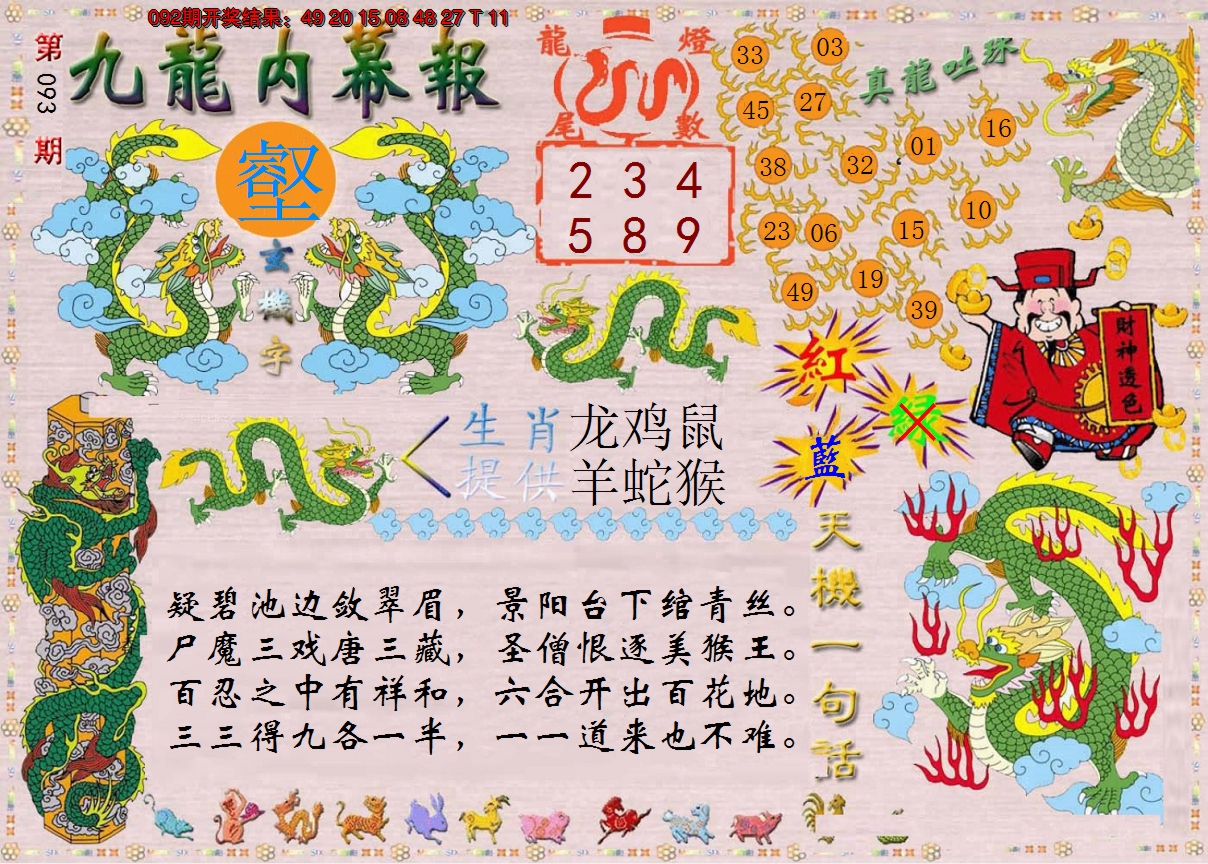 092期开奖结果：49 20 15.08 48 27 T 11
第093期
九龍内幕報
壑
玄機字
龍燈尾數
2 3 4
5 8 9
真龍吐珠
33 03
45 27
38 32 01 16
23 06 15 10
49 19 39
財神透色
紅
绿
藍
生肖提供
龙鸡鼠
羊蛇猴
天機一句話
疑碧池边敛翠眉，景阳台下绾青丝。
尸魔三戏唐三藏，圣僧恨逐美猴王。
百忍之中有祥和，六合开出百花地。
三三得九各一半，一一道来也不难。